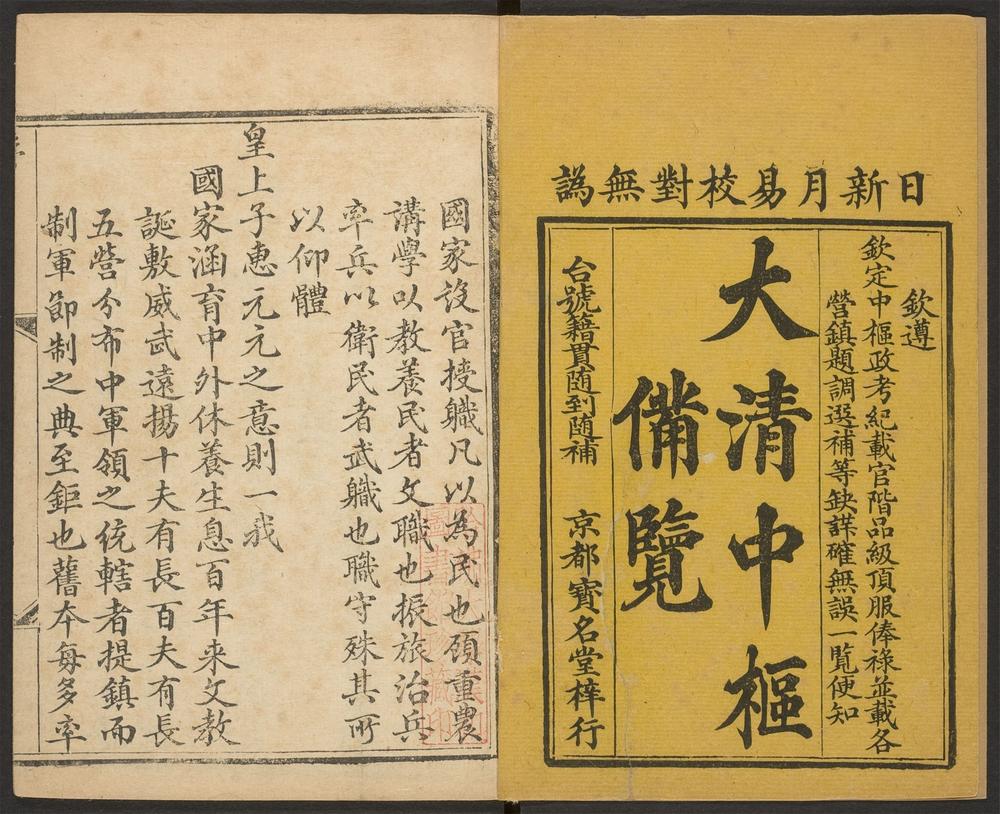 日新月易校對無譌
欽遵
欽定中樞政考紀載官階品級頂服俸祿並載各
營鎮題調選補等缺諜確無誤一覽便知
大清中樞
備覽
台號籍貫随到随補 京都寶名堂梓行
國家設官授職凡以為民也顧重農
講學以教養民者文職也振旅治兵
率兵以衛民者武職也職守殊其所
以仰體
皇上子惠元元之意則一我
國家涵育中外休養生息百年来文教
誕敷威武遠揚十夫有長百夫有長
五營分布中軍領之统轄者提鎮而
制軍節制之典至鉅也舊本每多率